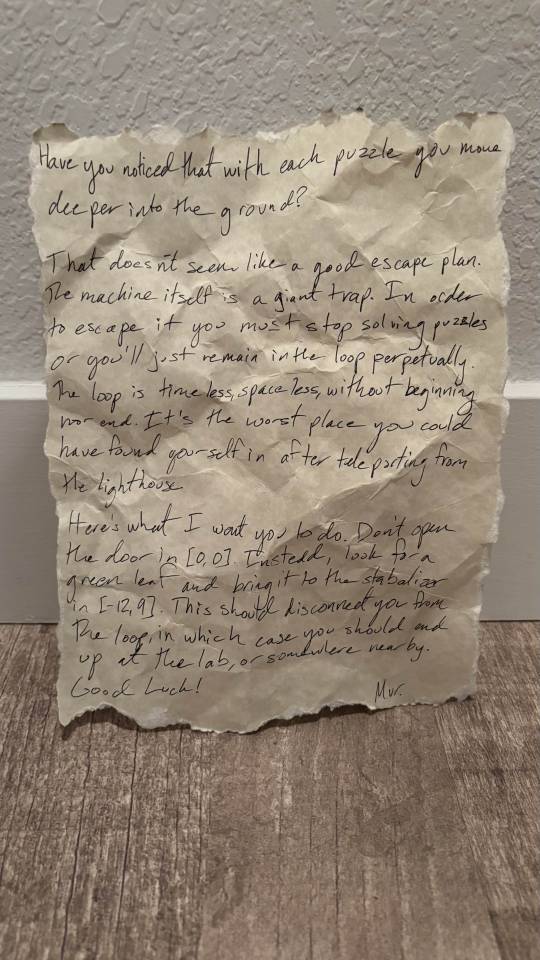 Have you noticed that with each puzzle you move
deeper into the ground?
That doesn't seem like a good escape plan.
The machine itself is a giant trap. In order
to escape it you must stop solving puzzles
or you'll just remain in the loop perpetually.
The loop is timeless, spaceless, without beginning
nor end. It's the worst place you could
have found yourself in after teleporting from
the lighthouse
Here's what I want you to do. Don't open
the door in [0,0]. Instead, look for a
green leaf and bring it to the stabalizer
in [-12,9]. This should disconnect you from
the loop, in which case you should end
up at the lab, or somewhere nearby.
Good Luck! Mur.